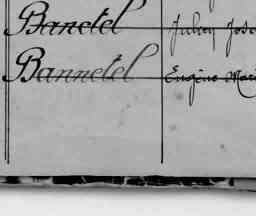 Banctel Julien Jose
Bannetel Eugène Mari